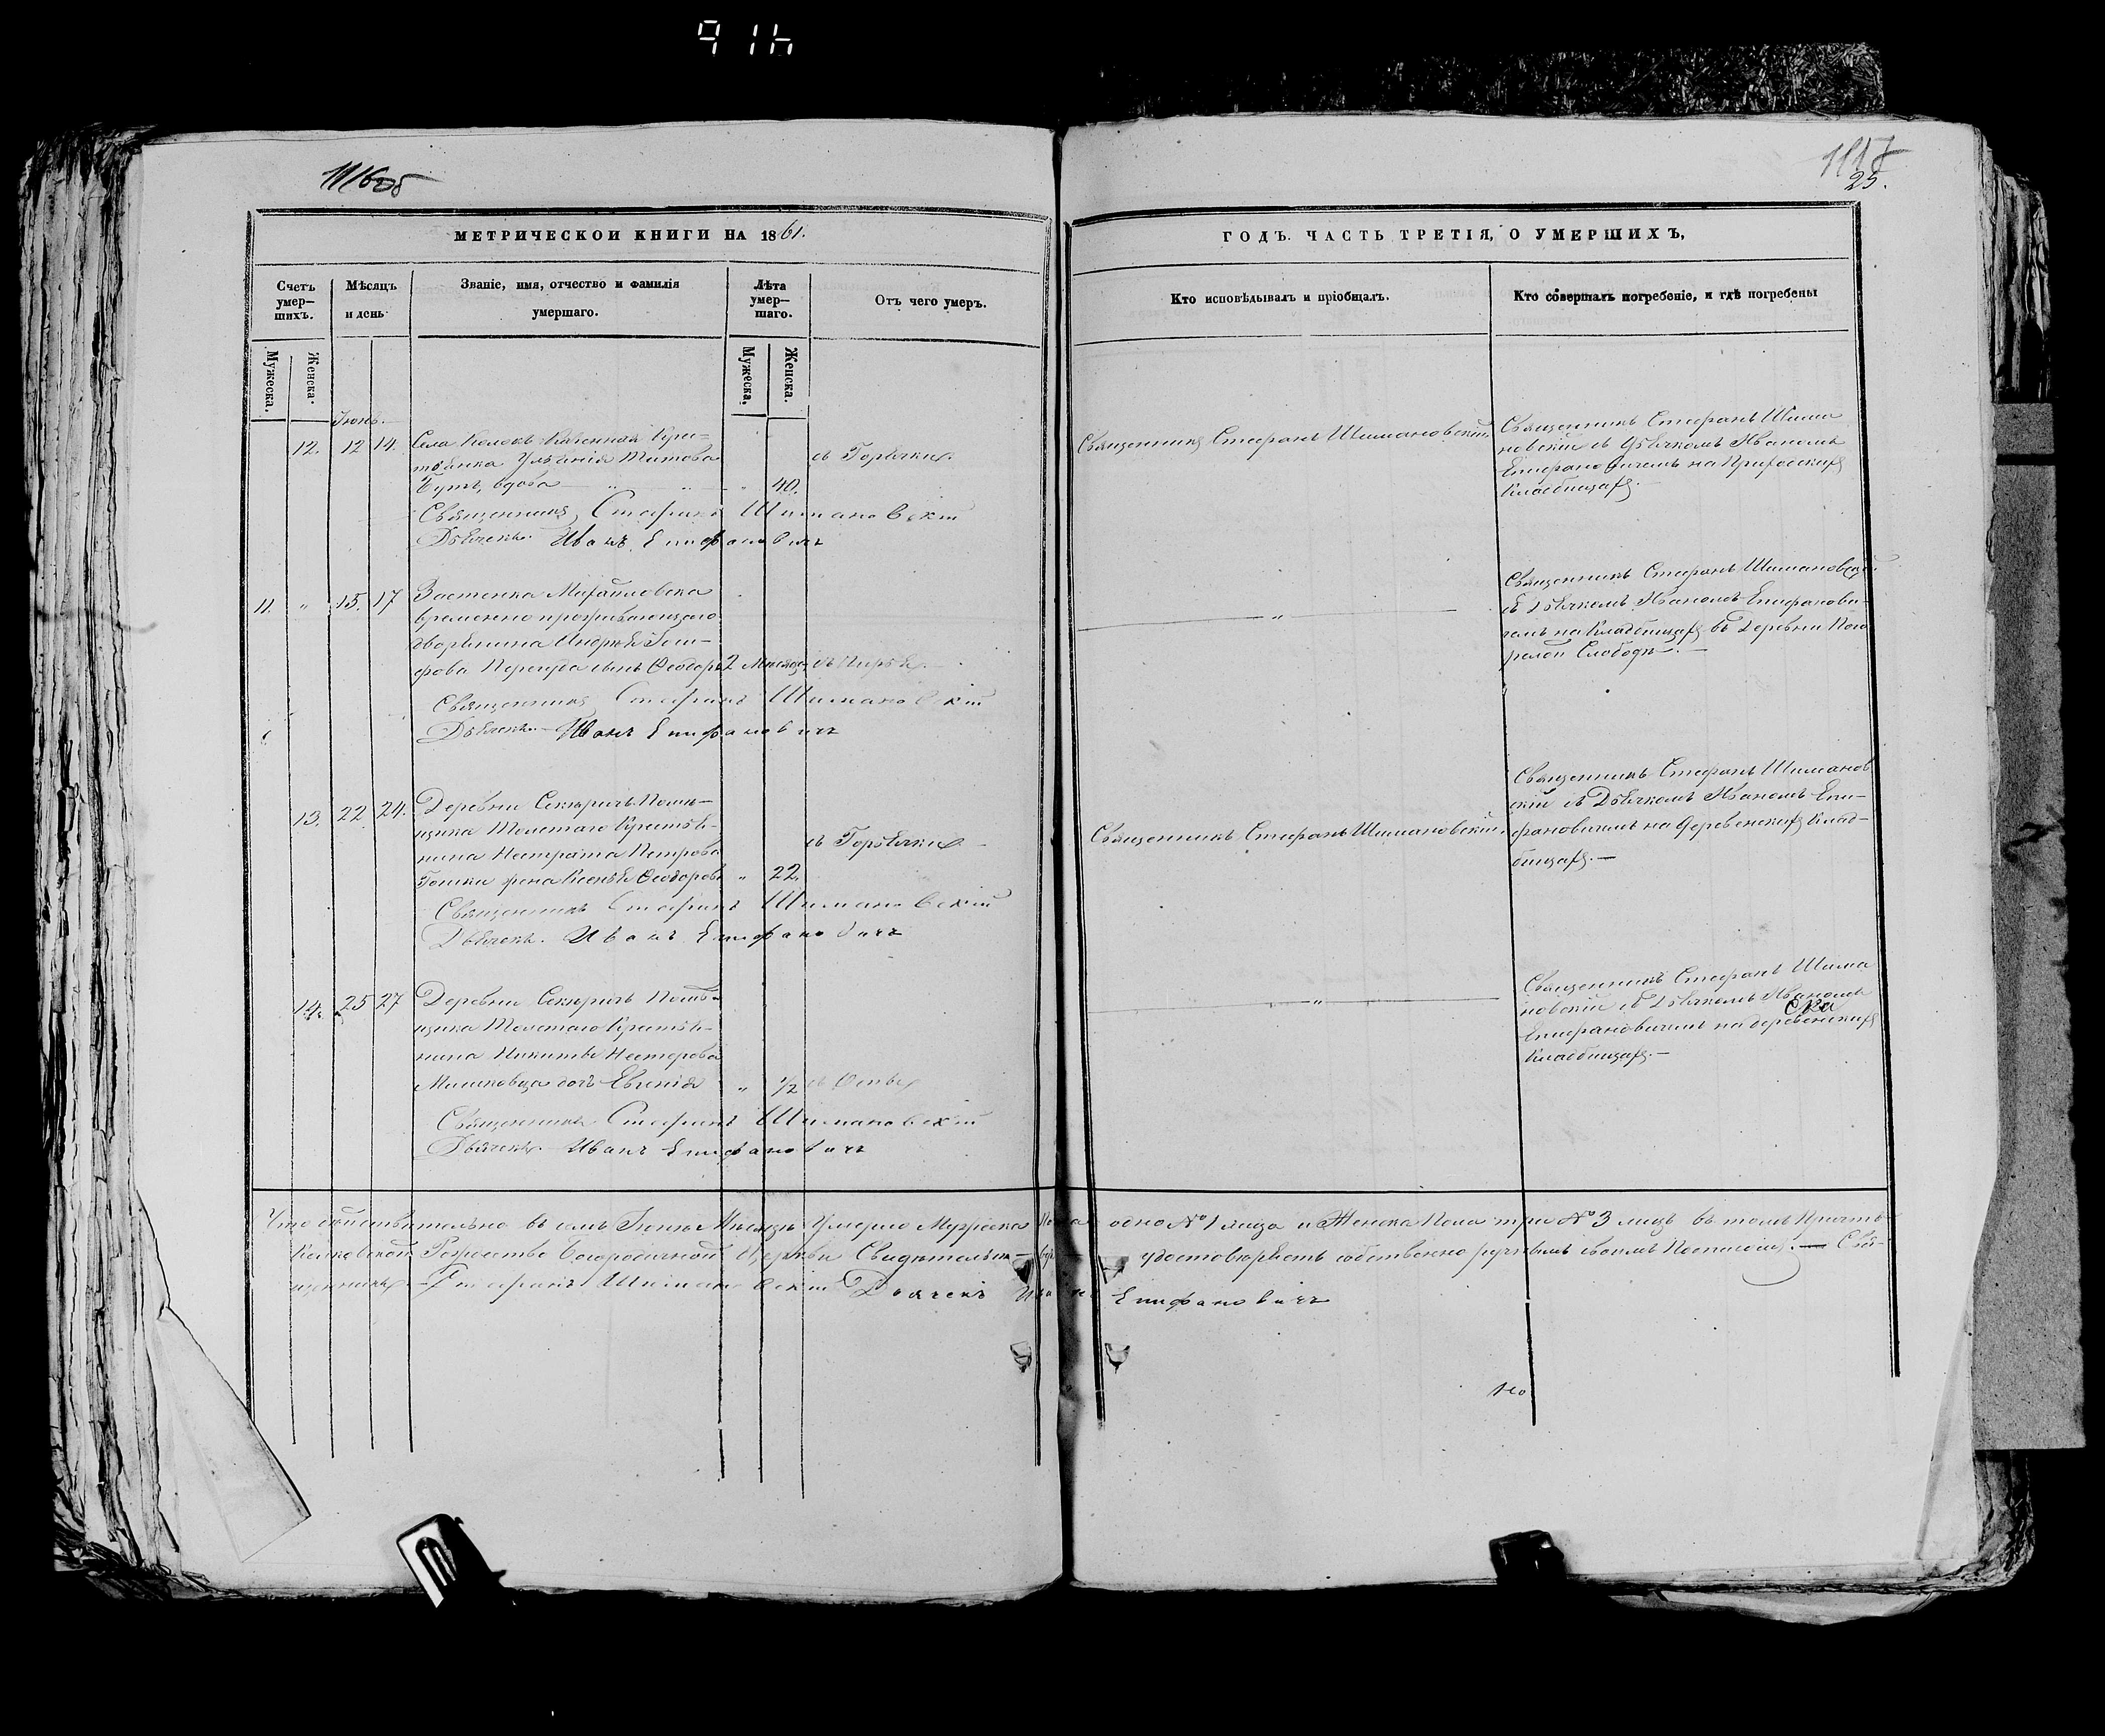 914
1116об
1117
25.
МЕТРИЧЕСКОЙ КНИГИ НА 1861.
ГОДЪ. ЧАСТЬ ТРЕТІЯ, О УМЕРШИХЪ,
Счетъ умер-
шихъ.
Мѣсяцъ
и день
Званіе, имя, отчество и фамилія
умершаго.
Лѣта
умер-
шаго.
Отъ чего умеръ.
Кто исповѣдывалъ и пріобщалъ.
Кто совершалъ погребеніе, и гдѣ погребены
Мужеска.
Женска.
Мужеска.
Женска.
Іюнь.
12. 12 14.
Села Колокъ Казенная Крес-
тьянка Титова
вдова " " " 40.
съ Горячки.
Священникъ Стефанъ Шимановскій
Дьячекъ Иванъ Епифановичъ
Священникъ Стефанъ Шимановскій
Священникъ Стефанъ Шима
новскій съ Дьячкомъ Иваномъ
Епифановичемъ на Приходскихъ
Кладбищахъ.
11. " 15. 17
Застенка Михайловска
временно проживающаго
дворянина Андрея
сынъ Ѳеодоръ 2 Мѣсяца
Священникъ Стефанъ Шимановскій
Дьячекъ Иванъ Епифановичъ
"
Священникъ Стефанъ Шимановскій
съ Дьячкомъ Иваномъ Епифанови-
чемъ на Кладбищахъ въ Деревни Пого
релой Слободѣ.
13. 22 24.
Деревни Секеричъ Помѣ-
щика Толстаго Крестья-
нина Петрова
жена Ѳеодорова " 22.
съ Горячки
Священникъ Стефанъ Шимановскій
Дьячекъ. Иванъ Епифановичъ
Священникъ Стефанъ Шимановскій.
Священникъ Стефанъ Шиманов
скій съ Дьячкомъ Иваномъ Епи-
фановичемъ на деревенскихъ Клад-
бищахъ.
14. 25 27
Деревни Секеричъ Помѣ-
щика Толстаго Крестья-
нина Никиты Нестерова
дочь Евгенія " 1/2 съ Оспы
Священникъ Стефанъ Шимановскій
Дьячекъ Иванъ Епифановичъ
"
Священникъ Стефанъ Шима
новскій съ Дьячкомъ Иваномъ
Епифановичемъ на деревенскихъ
Кладбищахъ.
Что дѣйствительно въ семъ Іюнѣ Мѣсяцѣ Умерло Мужеска Пола одно № 1 лица и Женска Пола три № 3 лицъ въ томъ Причтъ
Рождество Богородичной Церкви удостовѣряетъ собственно ручнымъ своимъ Подписомъ. Свя-
щенникъ Стефанъ Шимановскій Дьячекъ Иванъ Епифановичъ